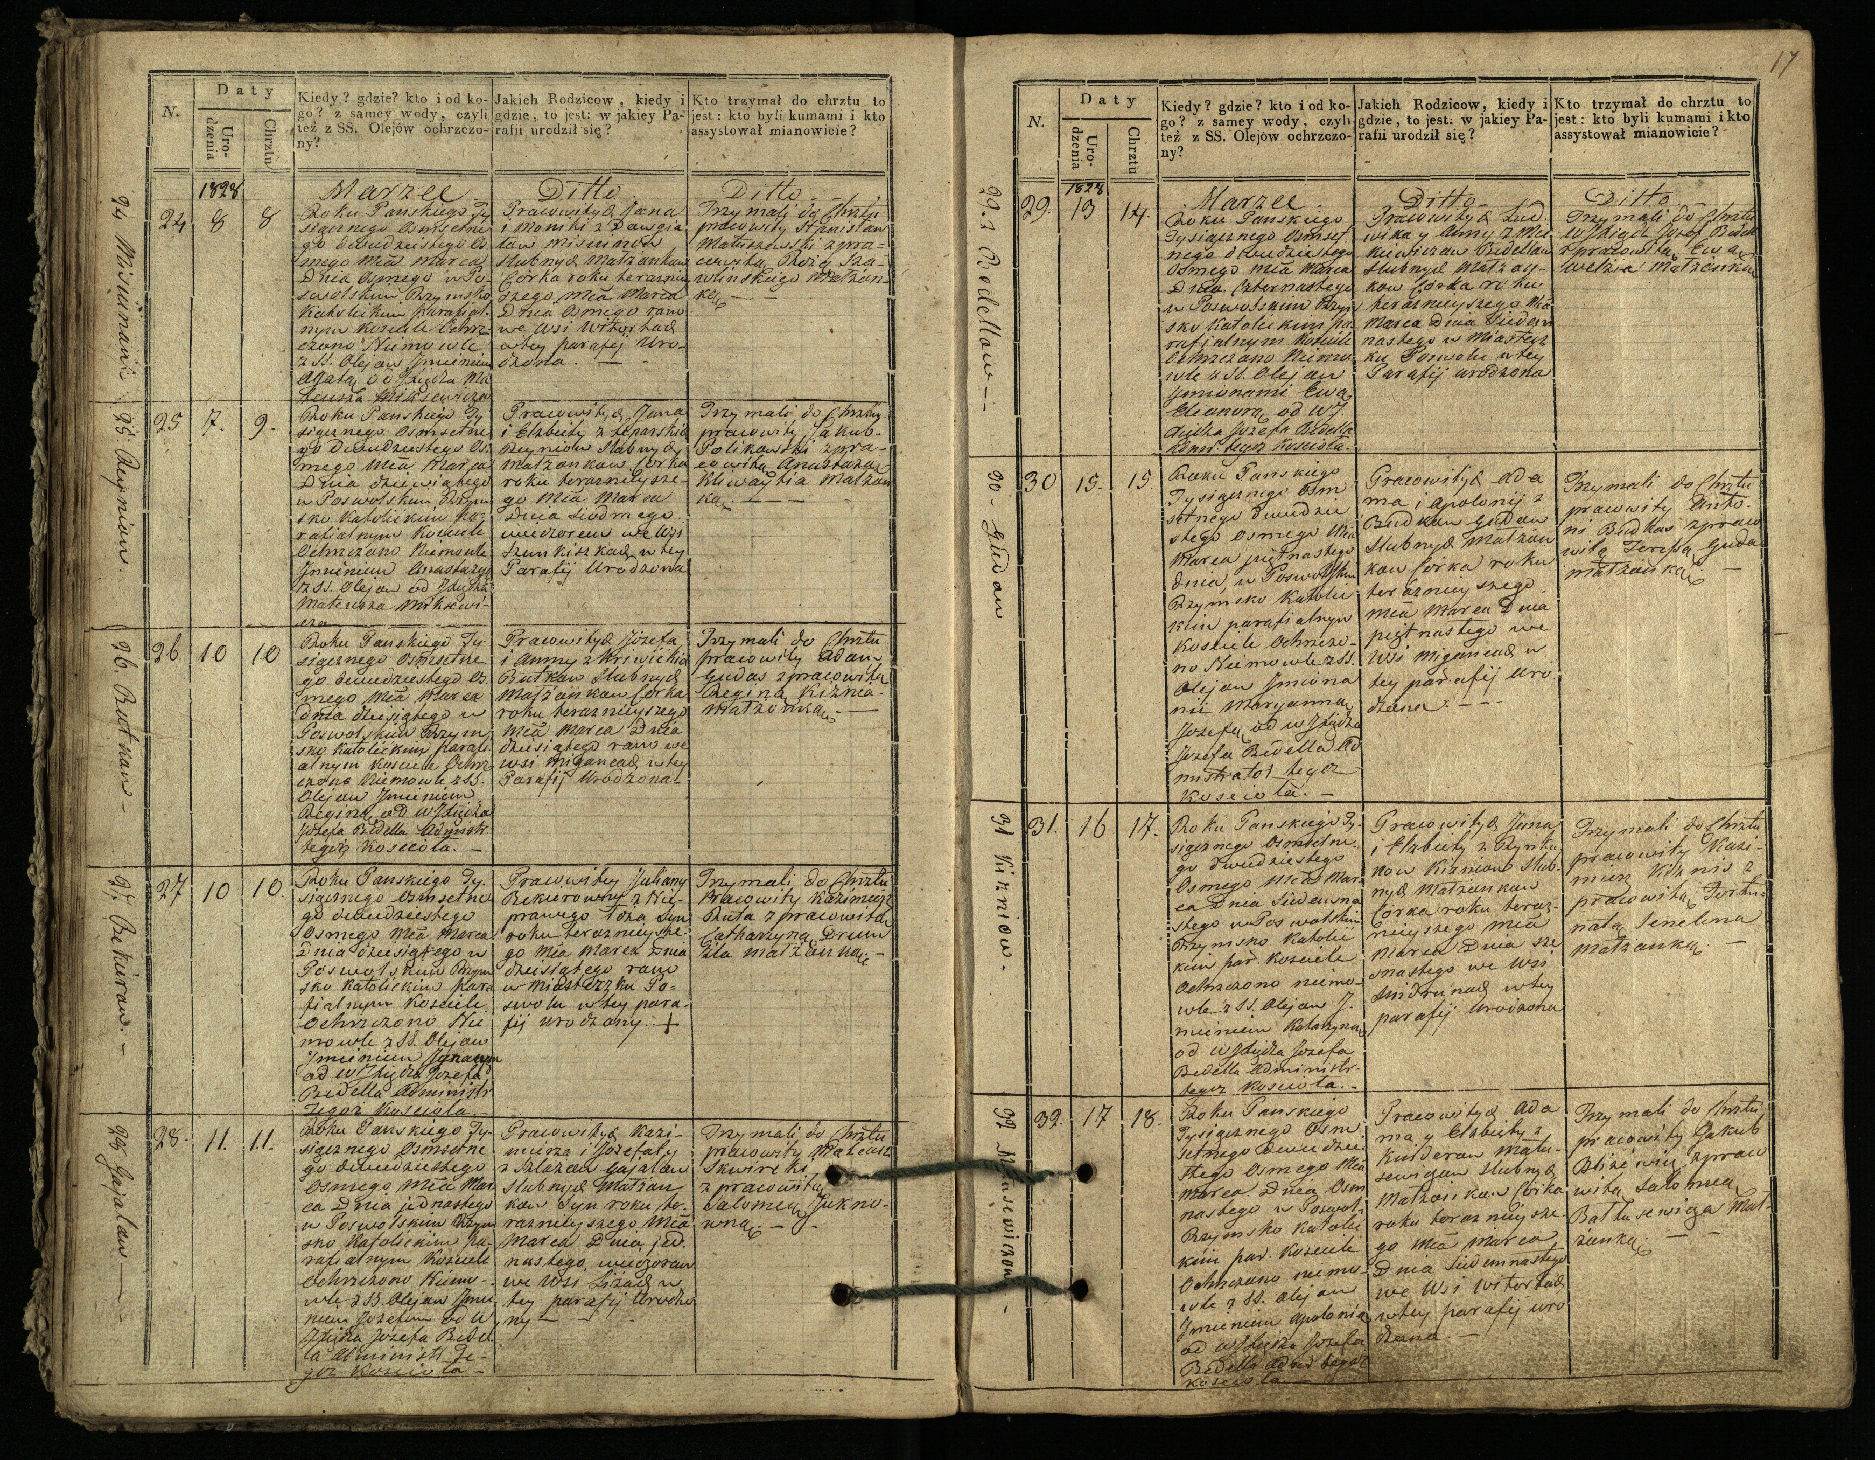 17
N.
Daty
Uro-
dzenia
Chrztu
Kiedy? gdzie? kto i od ko-
go? z samey wody, czyli
też z SS. Olejów ochrzczo-
ny?
Jakich Rodzicow, kiedy i
gdzie, to jest: w jakiey Pa-
rafii urodził się?
Kto trzymał do chrztu to
jest: kto byli kumami i kto
assystował mianowicie?
1828
Marzec
Ditto
Ditto
24
8
8
Roku Panskiego Ty
siącznego Osmsetne
go dwudziestego Os
mego Mca Marca
Dnia Osmego w Po
swolskim Rzymsko
Katolickim parafial-
nym Kosciele Ochrz-
czono Niemowle
z SS. Olejow Imieniem
Agata od Xiędza Ma
teusza
Pracowitych Jana
i
Slubnych Małżonkow
Corka roku teraznie
szego Mca Marca
Dnia Osmego rano
we Wsi
w tey parafij Uro-
dzona. —
Trzymali do Chrztu
pracowity Stanisław
z pra-
cowitą
Małżon-
ką — —
25 Reyniow
25
7.
9.
Roku Panskiego Ty
siącznego Osmsetne
go Dwudziestego Os
mego Mca Marca
Dnia dziewiątego
w Poswolskim Rzym
sko Katolickim Pa-
rafialnym Kosciele
Ochrzczono Niemowle
Imieniem Anastazya
z SS. Olejow od Xiędza
Mateusza
Pracowitych Jana
i Elzbiety z
Reyniow Slubnych
Małżonkow Corka
roku teraznieysze-
go Mca Marca
Dnia siodmego
wieczorem we Wsi
w tey
Parafij Urodzona
Trzymali do Chrztu
pracowity Jakub
z pra-
cowitą Anastazyą
Małżon
ką — —
26 Butkow —
26
10
10
Roku Panskiego Ty
siącznego Osmsetne
go dwudziestego Os
mego Mca Marca
Dnia dziesiątego w
Poswolskim Rzym
sko Katolickim parafi
alnym Kosciele Ochrz
czono Niemowle z SS.
Olejow Imieniem
Regina od W Xiędza
Jozefa Bedella Administr
tegoż Kosciola. —
Pracowitych Jozefa
i Anny z
Butkow Slubnych
Małżonkow Corka
roku teraznieyszego
Mca Marca Dnia
dziesiątego rano we
wsi Migancach w tey
Parafij Urodzona
Trzymali do Chrztu
pracowity Adam
Gudas z pracowitą
Reginą
Małżonką —
27
10
10.
Roku Panskiego Ty-
siącznego Osmsetne
go dwudziestego
Osmego Mca Marca
Dnia dziesiątego w
Poswolskim Rzym
sko Katolickim Para
fialnym Kosciele
Ochrzczono Nie
mowle z SS. Olejow
Imieniem
od W Xiędza Jozefa
Bedella Administr
Tegoż Kosciola —
Pracowitey Juliany
z Nie-
prawego Łoża Syn
roku teraznieysze-
go Mca Marca Dnia
dziesiątego rano
w Miasteczku Po-
swolu w tey para-
fij urodzony. +
Trzymali do Chrztu
Pracowity Kazimierz
Ruta z pracowitą
Catharzyną
28 Gajalow —
28.
11.
11.
Roku Panskiego Ty-
siącznego Osmsetne
go dwudziestego
Osmego Mca Mar
ca Dnia jednastego
w Poswolskim Rzym
sko Katolickim pa-
rafialnym Kosciele
Ochrzczono Niemo-
wle z SS. Olejow Imie
niem Jozefem od W
Xiędza Jozefa Bedel
la Administ. Te-
goż Kosciola —
Pracowitych Kazi-
mierza i Jozefaty
z Gajalow
Slubnych Małżon
kow Syn roku te-
raznieyszego Mca
Marca Dnia jed
nastego wieczorem
we Wsi w
tey parafij Urodzo
ny —
Trzymali do Chrztu
pracowity Mateusz
z pracowitą
Salomeą
N.
Daty
Uro-
dzenia
Chrztu
Kiedy? gdzie? kto i od ko-
go? z samey wody, czyli
też z SS. Olejów ochrzczo-
ny?
Jakich Rodzicow, kiedy i
gdzie, to jest: w jakiey Pa-
rafii urodził się?
Kto trzymał do chrztu to
jest: kto byli kumami i kto
assystował mianowicie?
1828
Marzec
Ditto
Ditto
29.
13
14.
Roku Panskiego
Tysiącznego Osmset
nego dwudziestego
Osmego Mca Marca
Dnia Czternastego
w Poswolskim Rzym
sko Katolickim pa-
rafialnym Kosciele
Ochrzczono Niemo
wle z SS. Olejow
Imionami Ewa
Eleonora od WJ.
Xiędza Jozefa Bedella
Admi: tegoż Kosciola. —
Pracowitych Lud
wika y Anny z
Bedellow
Slubnych Małżon-
kow Corka roku
teraznieyszego Mca
Marca Dnia
nastego w Miastecz
ku Poswolu w tey
Parafij urodzona
Trzymali do Chrztu
W Xiądz Jozef Bedell
z pracowitą Ewą
Małżonką
30 — Gudow
30
15.
15
Roku Panskiego
Tysiącznego Osm
setnego dwudzie
stego Osmego Mca
Marca piętnastego
dnia w Poswolskim
Rzymsko Katolic
kim parafialnym
Kosciele Ochrzczo-
no Niemowle z SS.
Olejow Imiona
mi Maryanna
Jozefa od W Xiędza
Jozefa Bedella Ad
ministrator tegoż
Kosciola. —
Pracowitych Ada
ma i Apolonij z
Butkow Gudow
Slubnych Małżon
kow Corka roku
teraznieyszego
Mca Marca Dnia
piętnastego we
Wsi Migancach w
tey parafij Uro
dzona. — —
Trzymali do Chrztu
pracowity Anto-
ni Butkas z praco
witą Teressą Guda
małżonką —
31.
16
17.
Roku Panskiego Ty-
siącznego Osmsetne-
go dwudziestego
Osmego Mca Mar
ca Dnia Siedmna
stego w Poswolskim
Rzymsko Katolic
kim par. Kosciele
Ochrzczono niemo-
wle z SS. Olejow I-
mieniem Katarzyna
od W Xiędza Jozefa
Bedella Administr-
tegoż Kosciola. —
Pracowitych Jana
i Elzbiety z
Slub-
nych Małżonkow
Corka roku teraz-
nieyszego Mca
Marca Dnia sze
snastego we Wsi
w tey
parafij Urodzona
Trzymali do Chrztu
pracowity Kazi-
mierz z
pracowitą Fortu-
natą
Małżonką. —
32.
17
18.
Roku Panskiego
Tysiącznego Osm
setnego Dwudzie
stego Osmego Mca
Marca Dnia Osm
nastego w Poswol
Rzymsko Katolic
kim par. Kosciele
Ochrzczono niemo-
wle z SS. Olejow
Imieniem Apolonia
od W Xiędza Jozefa
Bedella Adm tegoż
Kosciola —
Pracowitych Ada
ma y Elzbiety z
Slubnych
Małżonkow Corka
roku teraznieysze-
go Mca Marca
Dnia Siedmnastego
we Wsi
w tey parafij uro
dzona. —
Trzymali do Chrztu
pracowity Jakub
z praco
witą Salomeą
Mał-
żonką. — —